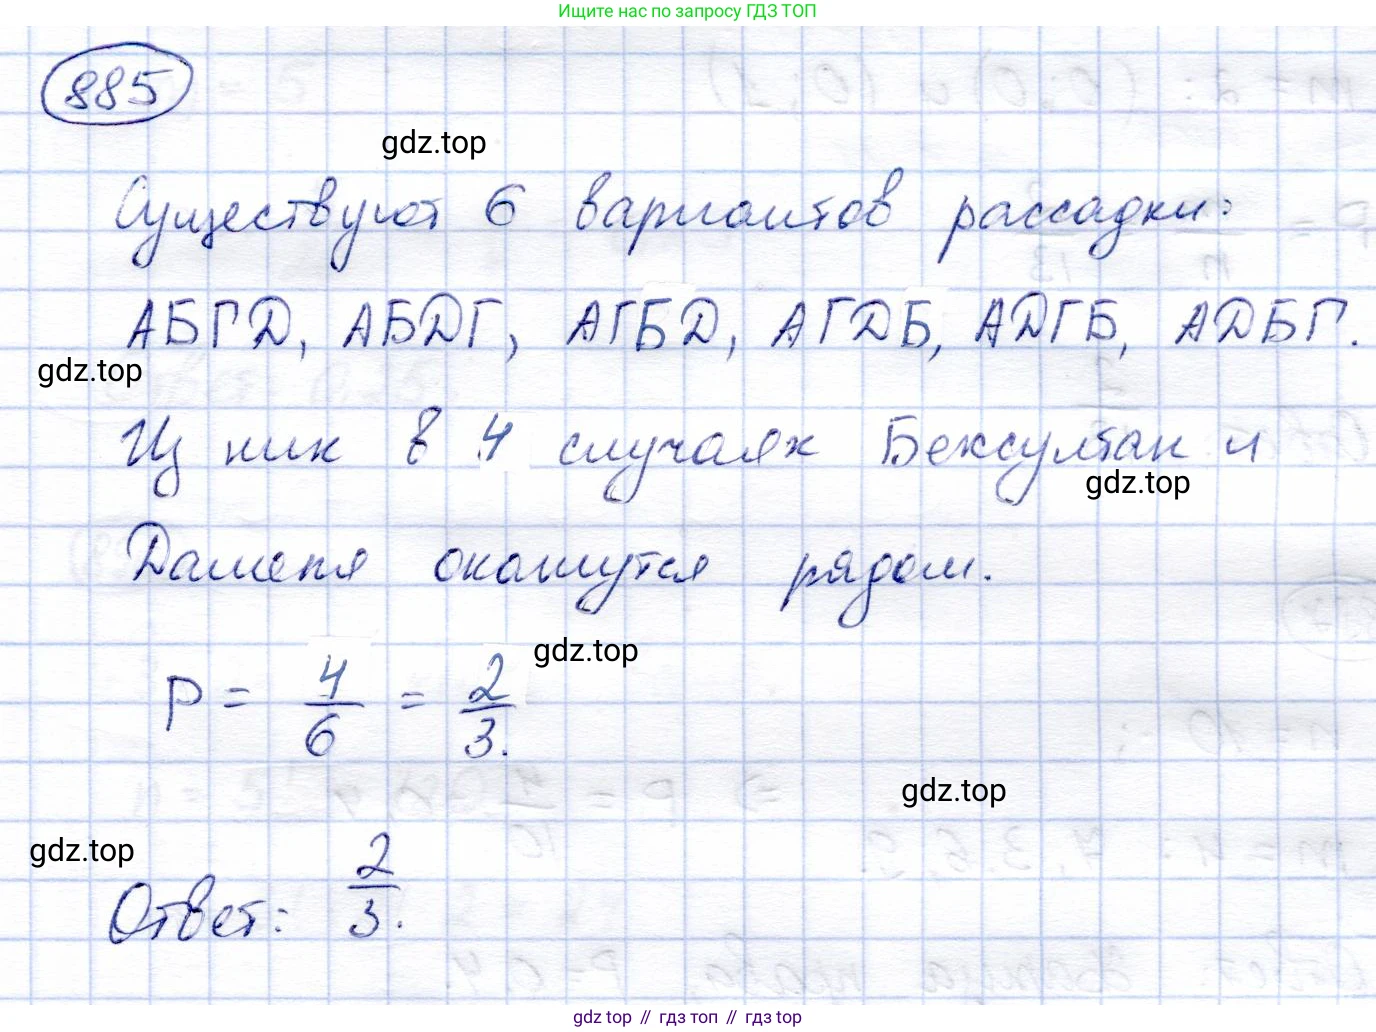 Ищите нас по запросу ГДЗ ТОП
885
gdz.top
Существуют 6 вариантов рассадки:
АБГД, АБДГ, АГБД, АГДБ, АДГБ, АДБГ.
gdz.top
Из них в 4 случаях Бексултан и
gdz.top
Данеля окажутся рядом.
gdz.top
P = 4/6 = 2/3.
gdz.top
gdz.top
Ответ: 2/3.
gdz top // гдз топ // гдз top